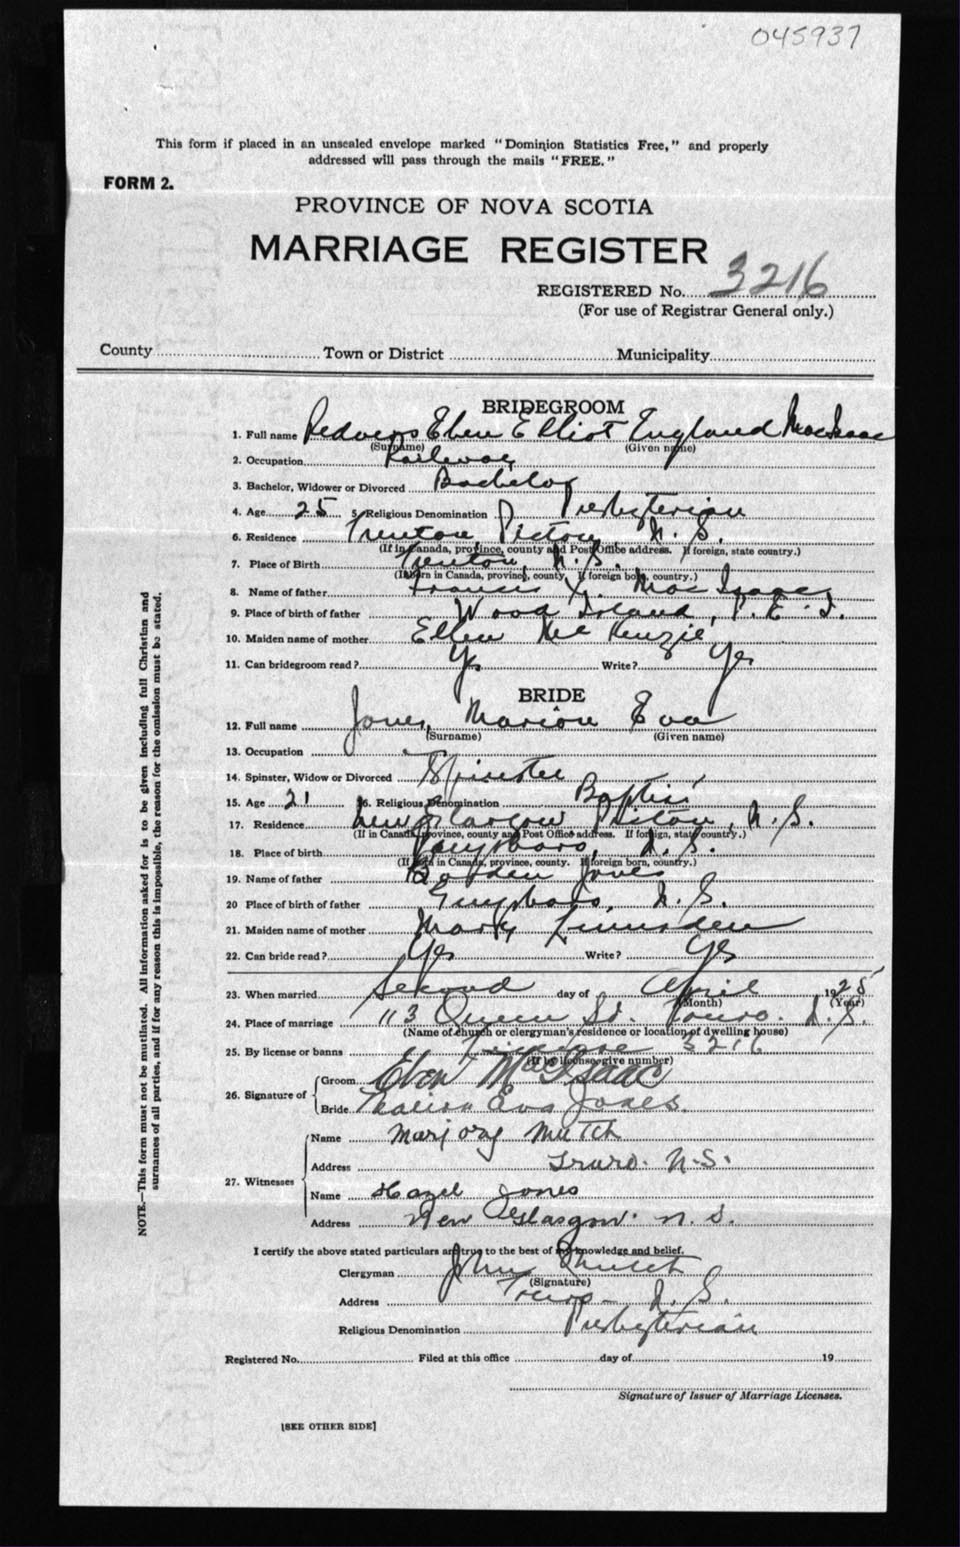 045937
This form if placed in an unsealed envelope marked "Dominion Statistics Free," and properly
addressed will pass through the mails "FREE."
FORM 2.
PROVINCE OF NOVA SCOTIA
MARRIAGE REGISTER
REGISTERED No. 3216
(For use of Registrar General only.)
County Town or District Municipality
BRIDEGROOM
1. Full name Redvers Eben Elliot England MacIsaac
(Surname) (Given name)
2. Occupation Railway
3. Bachelor, Widower or Divorced Bachelor
4. Age 25 5. Religious Denomination Presbyterian
6. Residence Trenton Pictou N. S.
(If in Canada, province, county and Post Office address. If foreign, state country.)
7. Place of Birth Trenton, N. S.
(If born in Canada, province, county. If foreign born, country.)
8. Name of father Francis X. MacIsaac
9. Place of birth of father Wood Island, P. E. I.
10. Maiden name of mother Ellen McKenzie
11. Can bridegroom read? Yes Write? Yes
BRIDE
12. Full name Jones, Marion Eva
(Surname) (Given name)
13. Occupation
14. Spinster, Widow or Divorced Spinster
15. Age 21 16. Religious Denomination Baptist
17. Residence New Glasgow Pictou, N. S.
(If in Canada, province, county and Post Office address. If foreign, state country.)
18. Place of birth Guysboro, N. S.
(If born in Canada, province, county. If foreign born, country.)
19. Name of father Jones
20 Place of birth of father Guysboro, N. S.
21. Maiden name of mother Mary Lumsden
22. Can bride read? Yes Write? Yes
23. When married Second day of April 1925
(Month) (Year)
24. Place of marriage 113 Queen St. Truro. N. S.
(Name of church or clergyman's residence or location of dwelling house)
25. By license or banns License 3216
(If by license, give number)
26. Signature of
Groom Eben MacIsaac
Bride Marion Eva Jones.
27. Witnesses
Name Marjory Mutch
Address Truro. N. S.
Name Hazel Jones
Address New Glasgow. N. S.
I certify the above stated particulars are true to the best of my knowledge and belief.
Clergyman John Mutch
(Signature)
Address Truro - N. S.
Religious Denomination Presbyterian
Registered No. Filed at this office day of 19
Signature of Issuer of Marriage Licenses.
[SEE OTHER SIDE]
NOTE.—This form must not be mutilated. All information asked for is to be given including full Christian and
surnames of all parties, and if for any reason this is impossible, the reason for the omission must be stated.